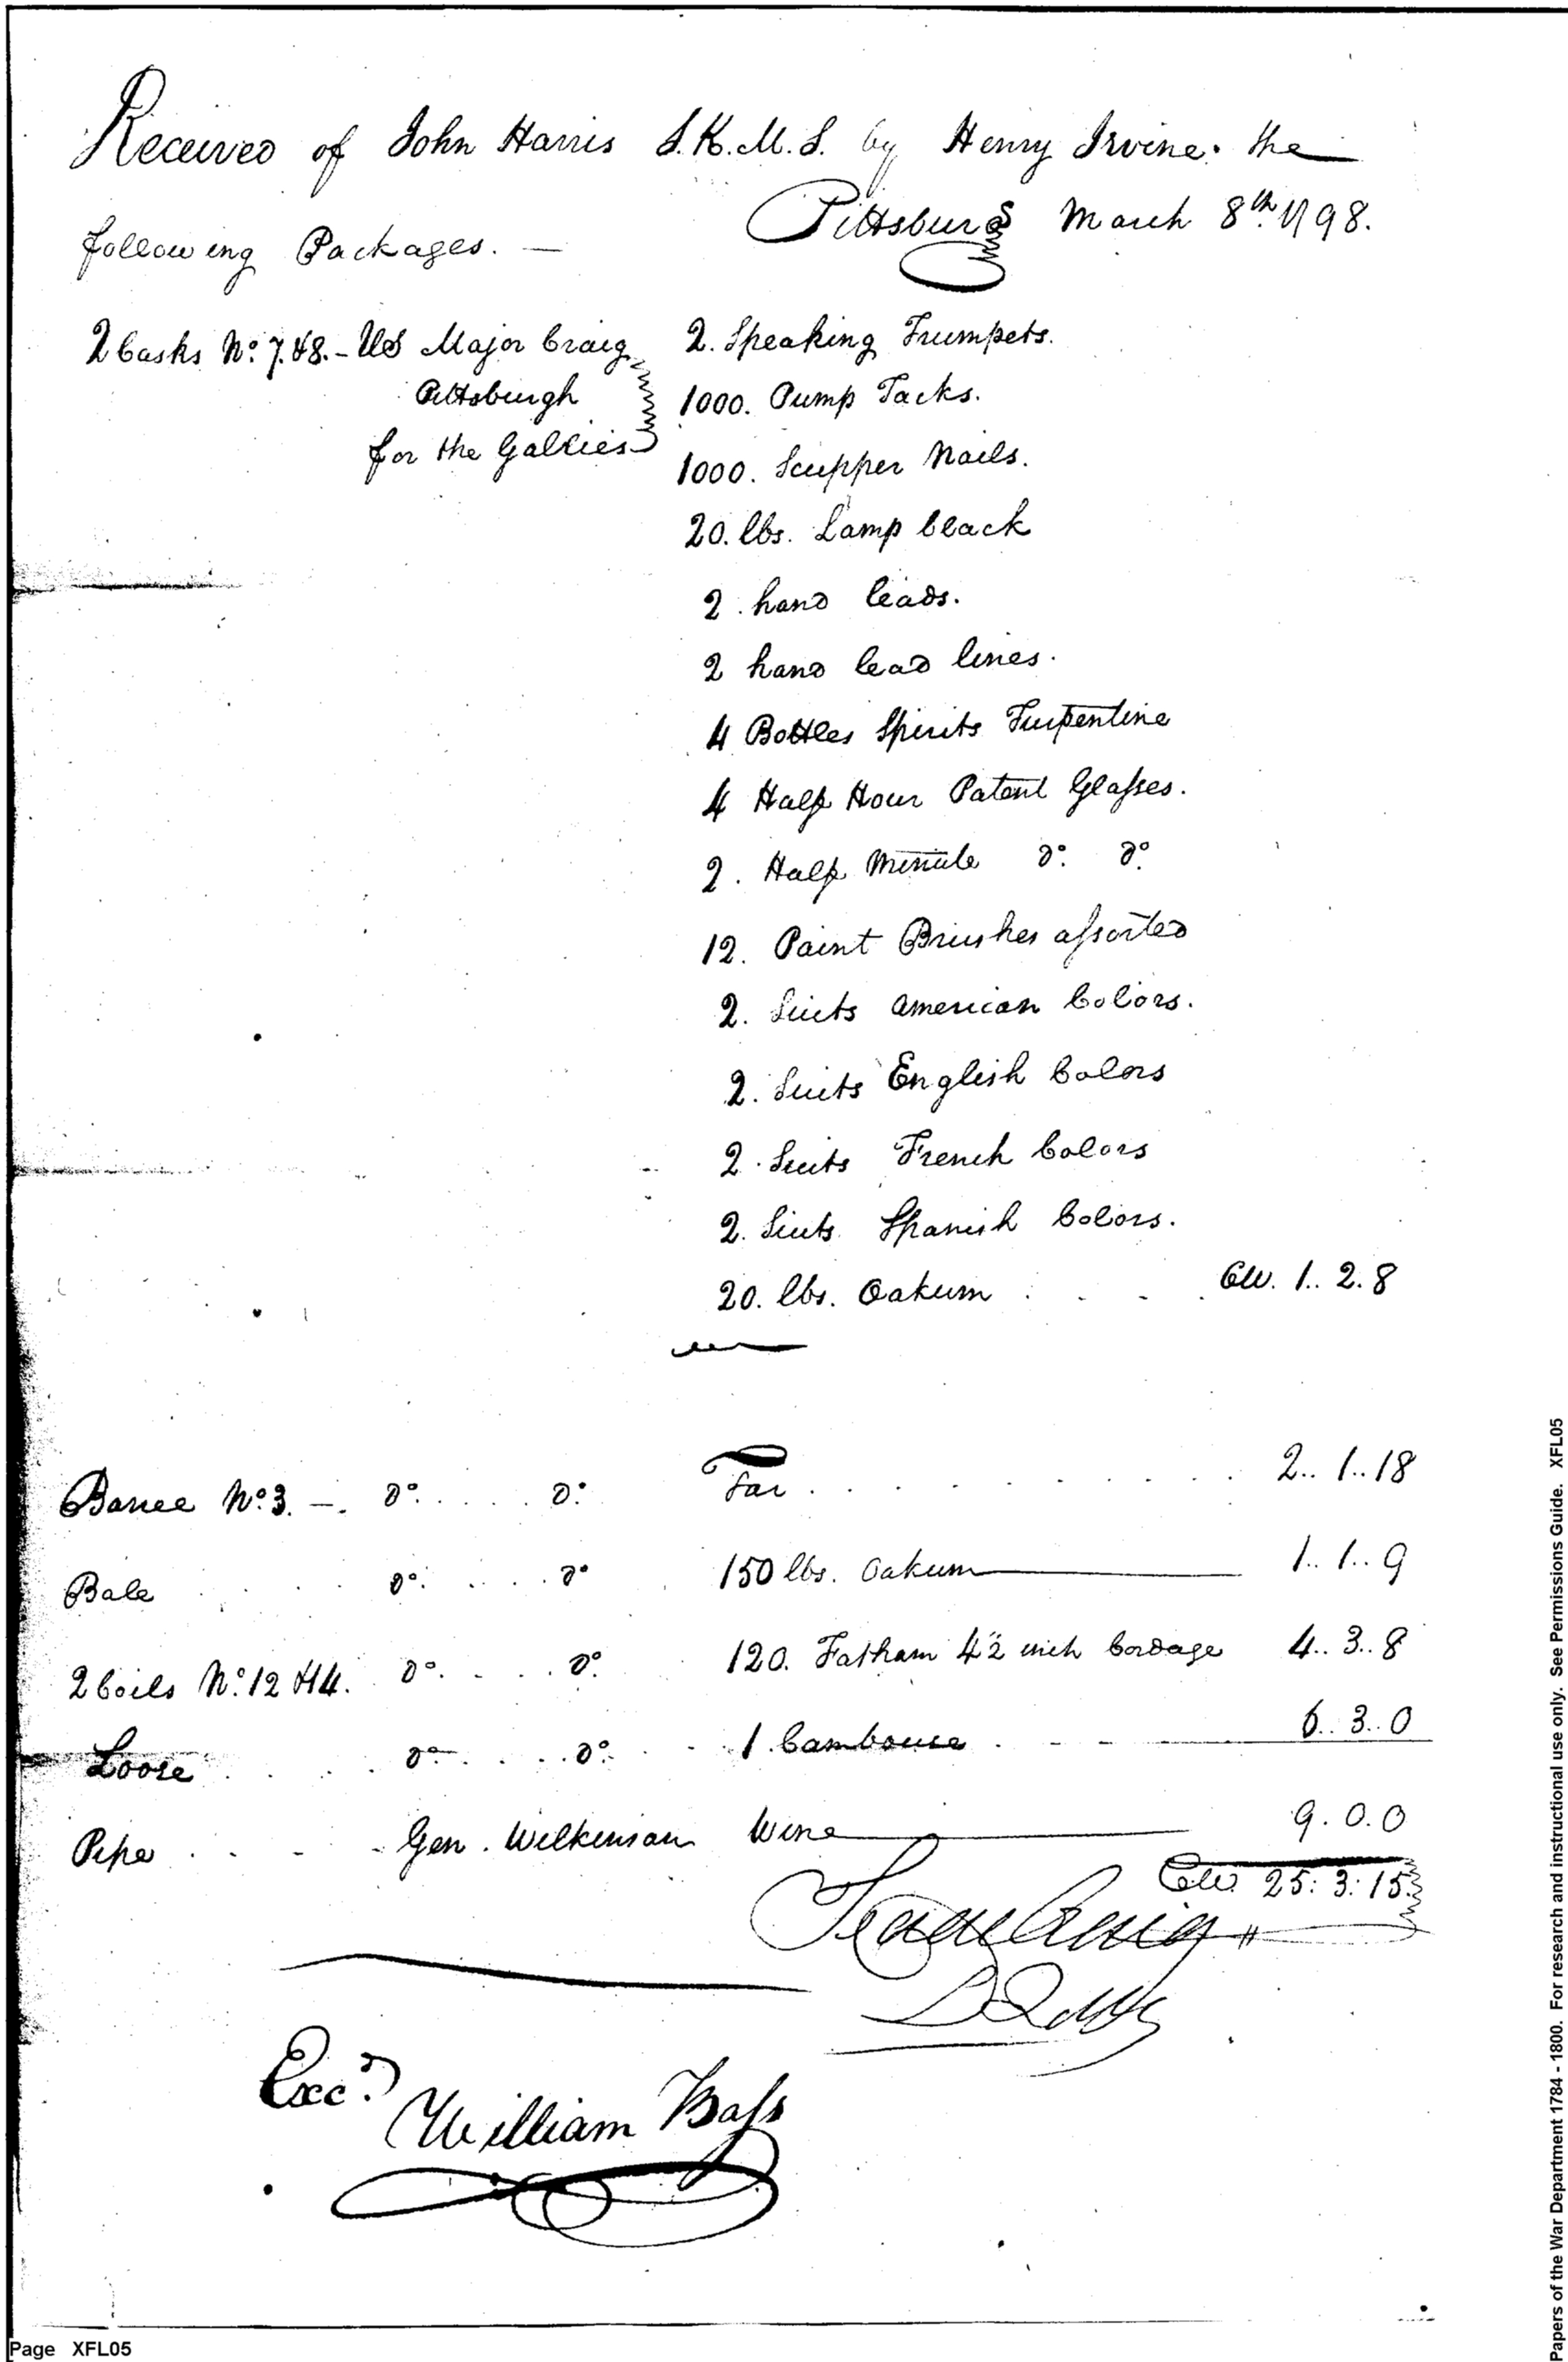 Received of John Harris S.K.M.S. by Henry Irvine. the
Pittsburg March 8th. 1798.
following Packages. —
2 Casks No. 7. &8. - US Major Craig
Pittsburgh
for the Gallies
2. Speaking Trumpets.
1000. Pump Tacks.
1000. Scupper Nails.
20. lbs. Lamp black
2. hand leads.
2 hand lead lines.
4 Bottles Spirits Turpentine
4 Half Hour Patent Glasses.
2. Half Minute do. do.
12. Paint Brushes assorted
2. Suits American Colors.
2. Suits English Colors
2. Suits French Colors
2. Suits Spanish Colors.
20. lbs. Oakum . . . . CW. 1.. 2. 8
Barrel No. 3. —. do. . . . . do. Tar . . . . . . . . . 2.. 1.. 18
Bale . . . . do. . . . . do 150 lbs. Oakum 1.. 1.. 9
2 Coils No. 12 &14. do. . . . do. 120. Fatham 4½ inch Cordage 4.. 3.. 8
Loose . . . . do. . . . do. . . 1. Cambouse . - - - 6.. 3.. 0
Pipe . . - - Gen. Wilkinson Wine 9. 0. 0
CW. 25: 3: 15.
Isaac Craig
DQMG
Exd.
William Bass
Page XFL05
Papers of the War Department 1784 - 1800. For research and instructional use only. See Permissions Guide. XFL05